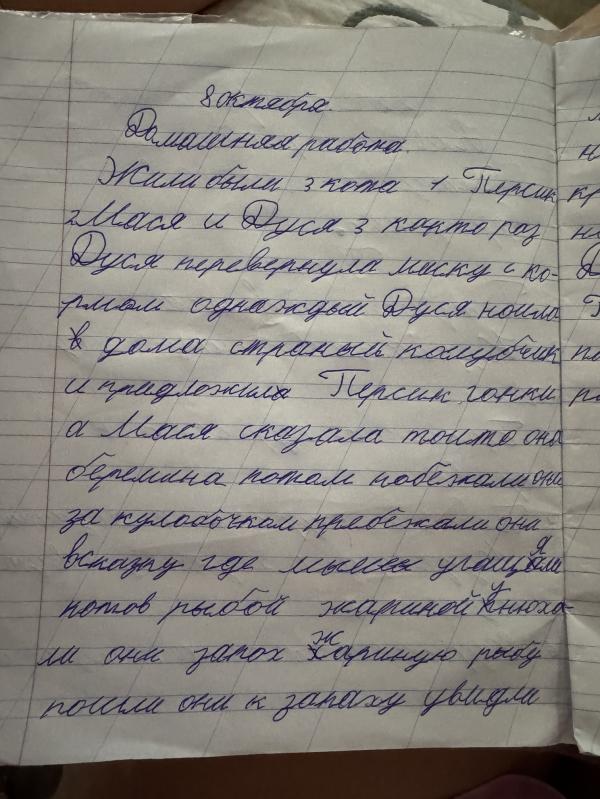 8 октября.
Домашняя работа.
Жили были 3 кота 1 Персик
2 Мася и Дуся 3 както раз
Дуся перевернула миску с ко-
рмом однаждый Дуся ношла
в дома страный колубчик
и придложила Персик гонки
а Мася сказала тошто она
беремина потом побежали они
за кулобочком пребежали они
всказку где мышы угощали
котов рыбой жариной унюха-
ли они запох жариную рыбу
пошли они к запаху увидли